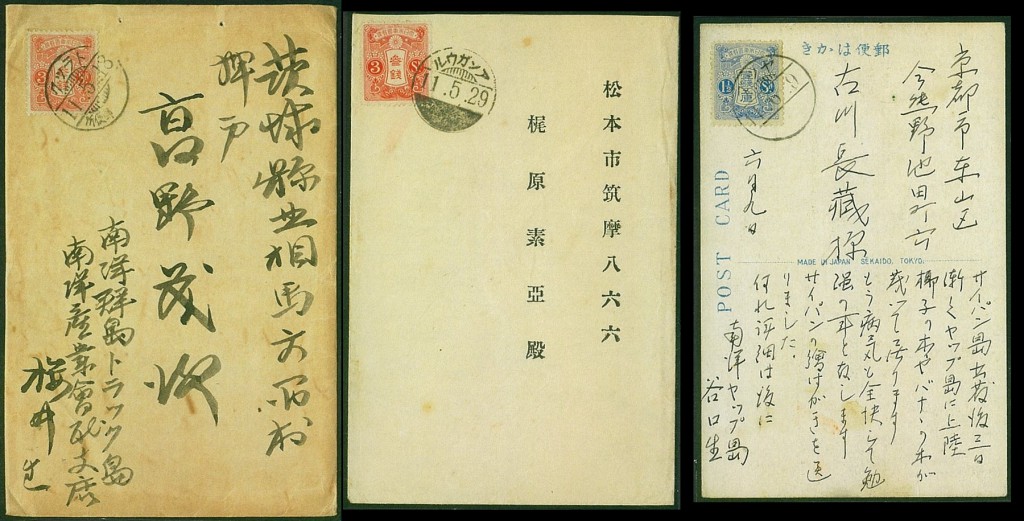 茨城縣北相馬郡
高野茂
南洋群島トラック島
南洋産業會社支店
櫻井
3 Sn
アンガウル
11.5.29
松本市筑摩八六六
梶原素亞殿
郵便はかき
1½ Sn
POST CARD
MADE IN JAPAN SEKAIDO, TOKYO.
京都市東山区
今熊野池田町六
古川長藏様
六月九日
サイパン島出發後三日
漸くヤップ島に上陸
椰子の木やバナヽの木が
茂つて居ります
もう病気も全快して勉
強の事と存じます
サイパンの繪はがきを送
りました、
何れ詳細は後に
南洋ヤップ島
谷口生